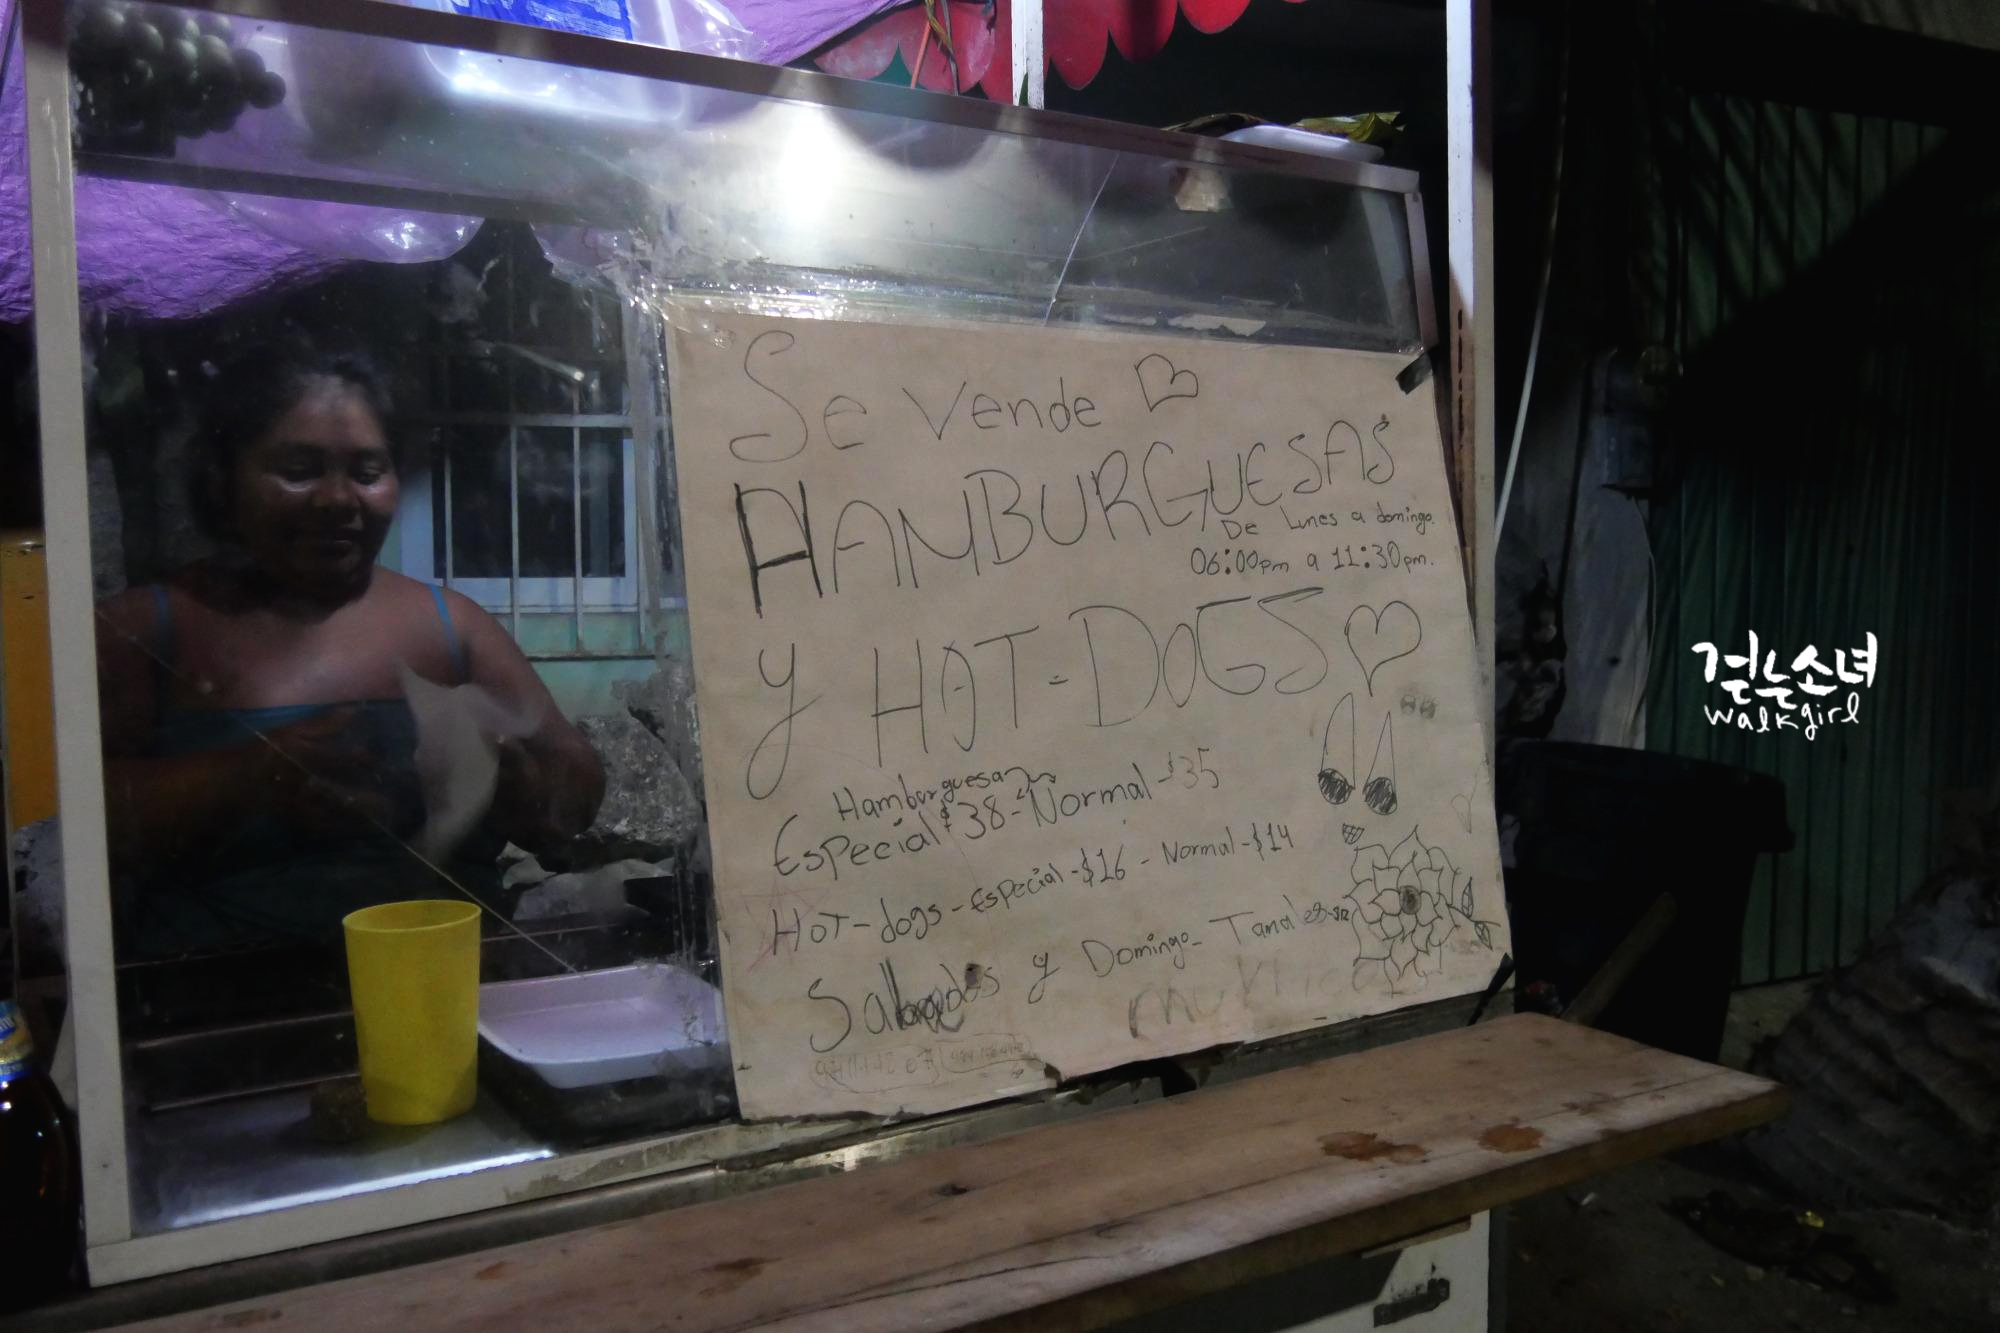 Se vende
HAMBURGUESAS
De Lunes a domingo.
06:00pm a 11:30pm.
y HOT-DOGS
Hamburguesa
Especial $38-Normal-$35
HOT-dogs-Especial-$16-Normal-$14
Sabados y Domingo-Tamales-$12
걷는소녀
walkgirl